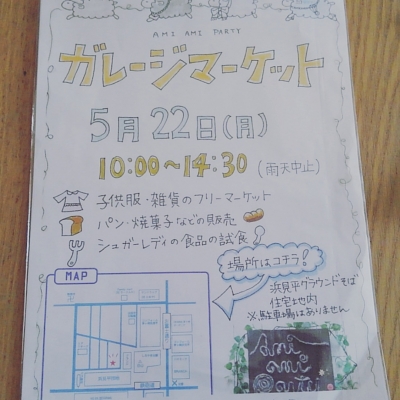 AMI AMI PARTY
ガレージマーケット
5月22日(月)
10:00〜14:30 (雨天中止)
子供服・雑貨のフリーマーケット
パン・焼菓子などの販売
シュガーレディの食品の試食
場所はコチラ!
MAP
浜見平グラウンドそば
住宅地内
※駐車場はありません
Ami
ami